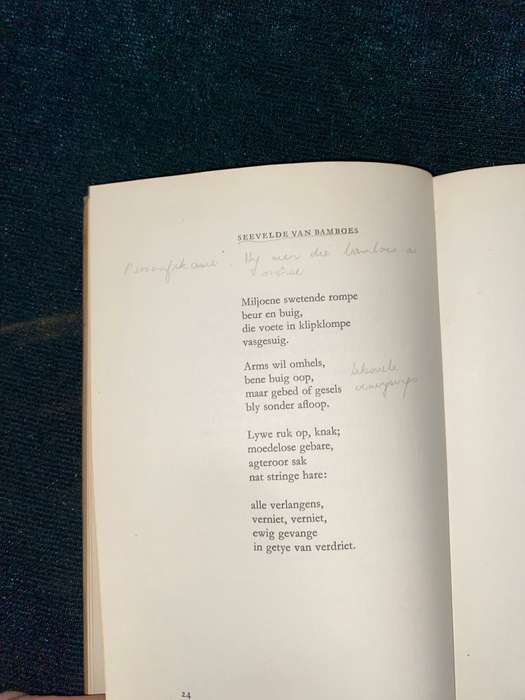 SEEVELDE VAN BAMBOES
Hy sien die bamboes as
Miljoene swetende rompe
beur en buig,
die voete in klipklompe
vasgesuig.
Arms wil omhels,
bene buig oop,
maar gebed of gesels
bly sonder afloop.
Seksuele
Lywe ruk op, knak;
moedelose gebare,
agteroor sak
nat stringe hare:
alle verlangens,
verniet, verniet,
ewig gevange
in getye van verdriet.
24